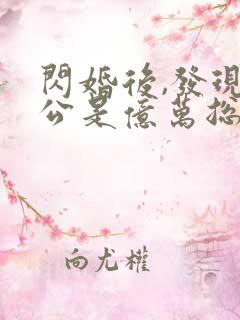 閃婚後,發現
公是億萬總
向尤權